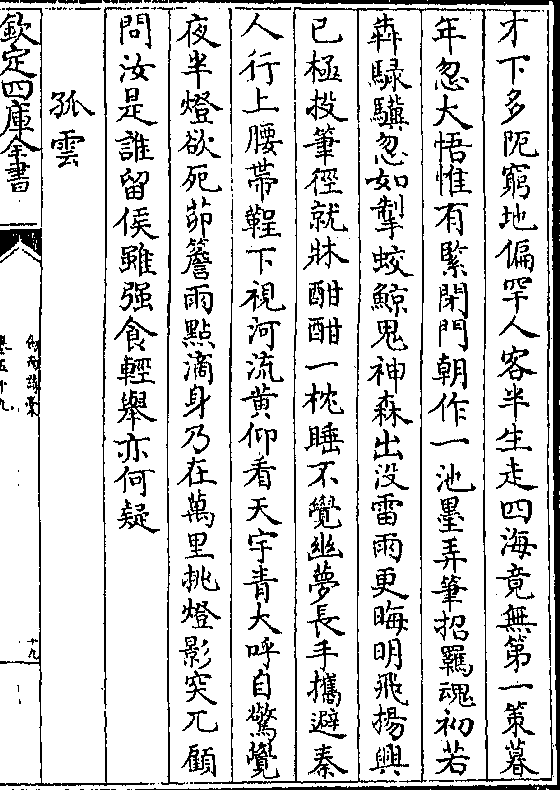 才下多阨窮地偏罕人客半生走四海竟無第一策暮
年忽大悟惟有緊閉門朝作一池墨弄筆招羈魂初若
犇騄驥忽如掣蛟鯨鬼神森出没雷雨更晦明飛揚興
已極投筆徑就牀酣酣一枕睡不覺幽夢長手攜避秦
人行上腰帶鞓下視河流黄仰看天宇青大呼自驚覺
夜半燈欲死茆簷雨點滴身乃在萬里挑燈影突兀顧
問汝是誰留侯雖强食輕舉亦何疑
孤雲
欽定四庫全書
劍南詩槀
卷五十九
十九